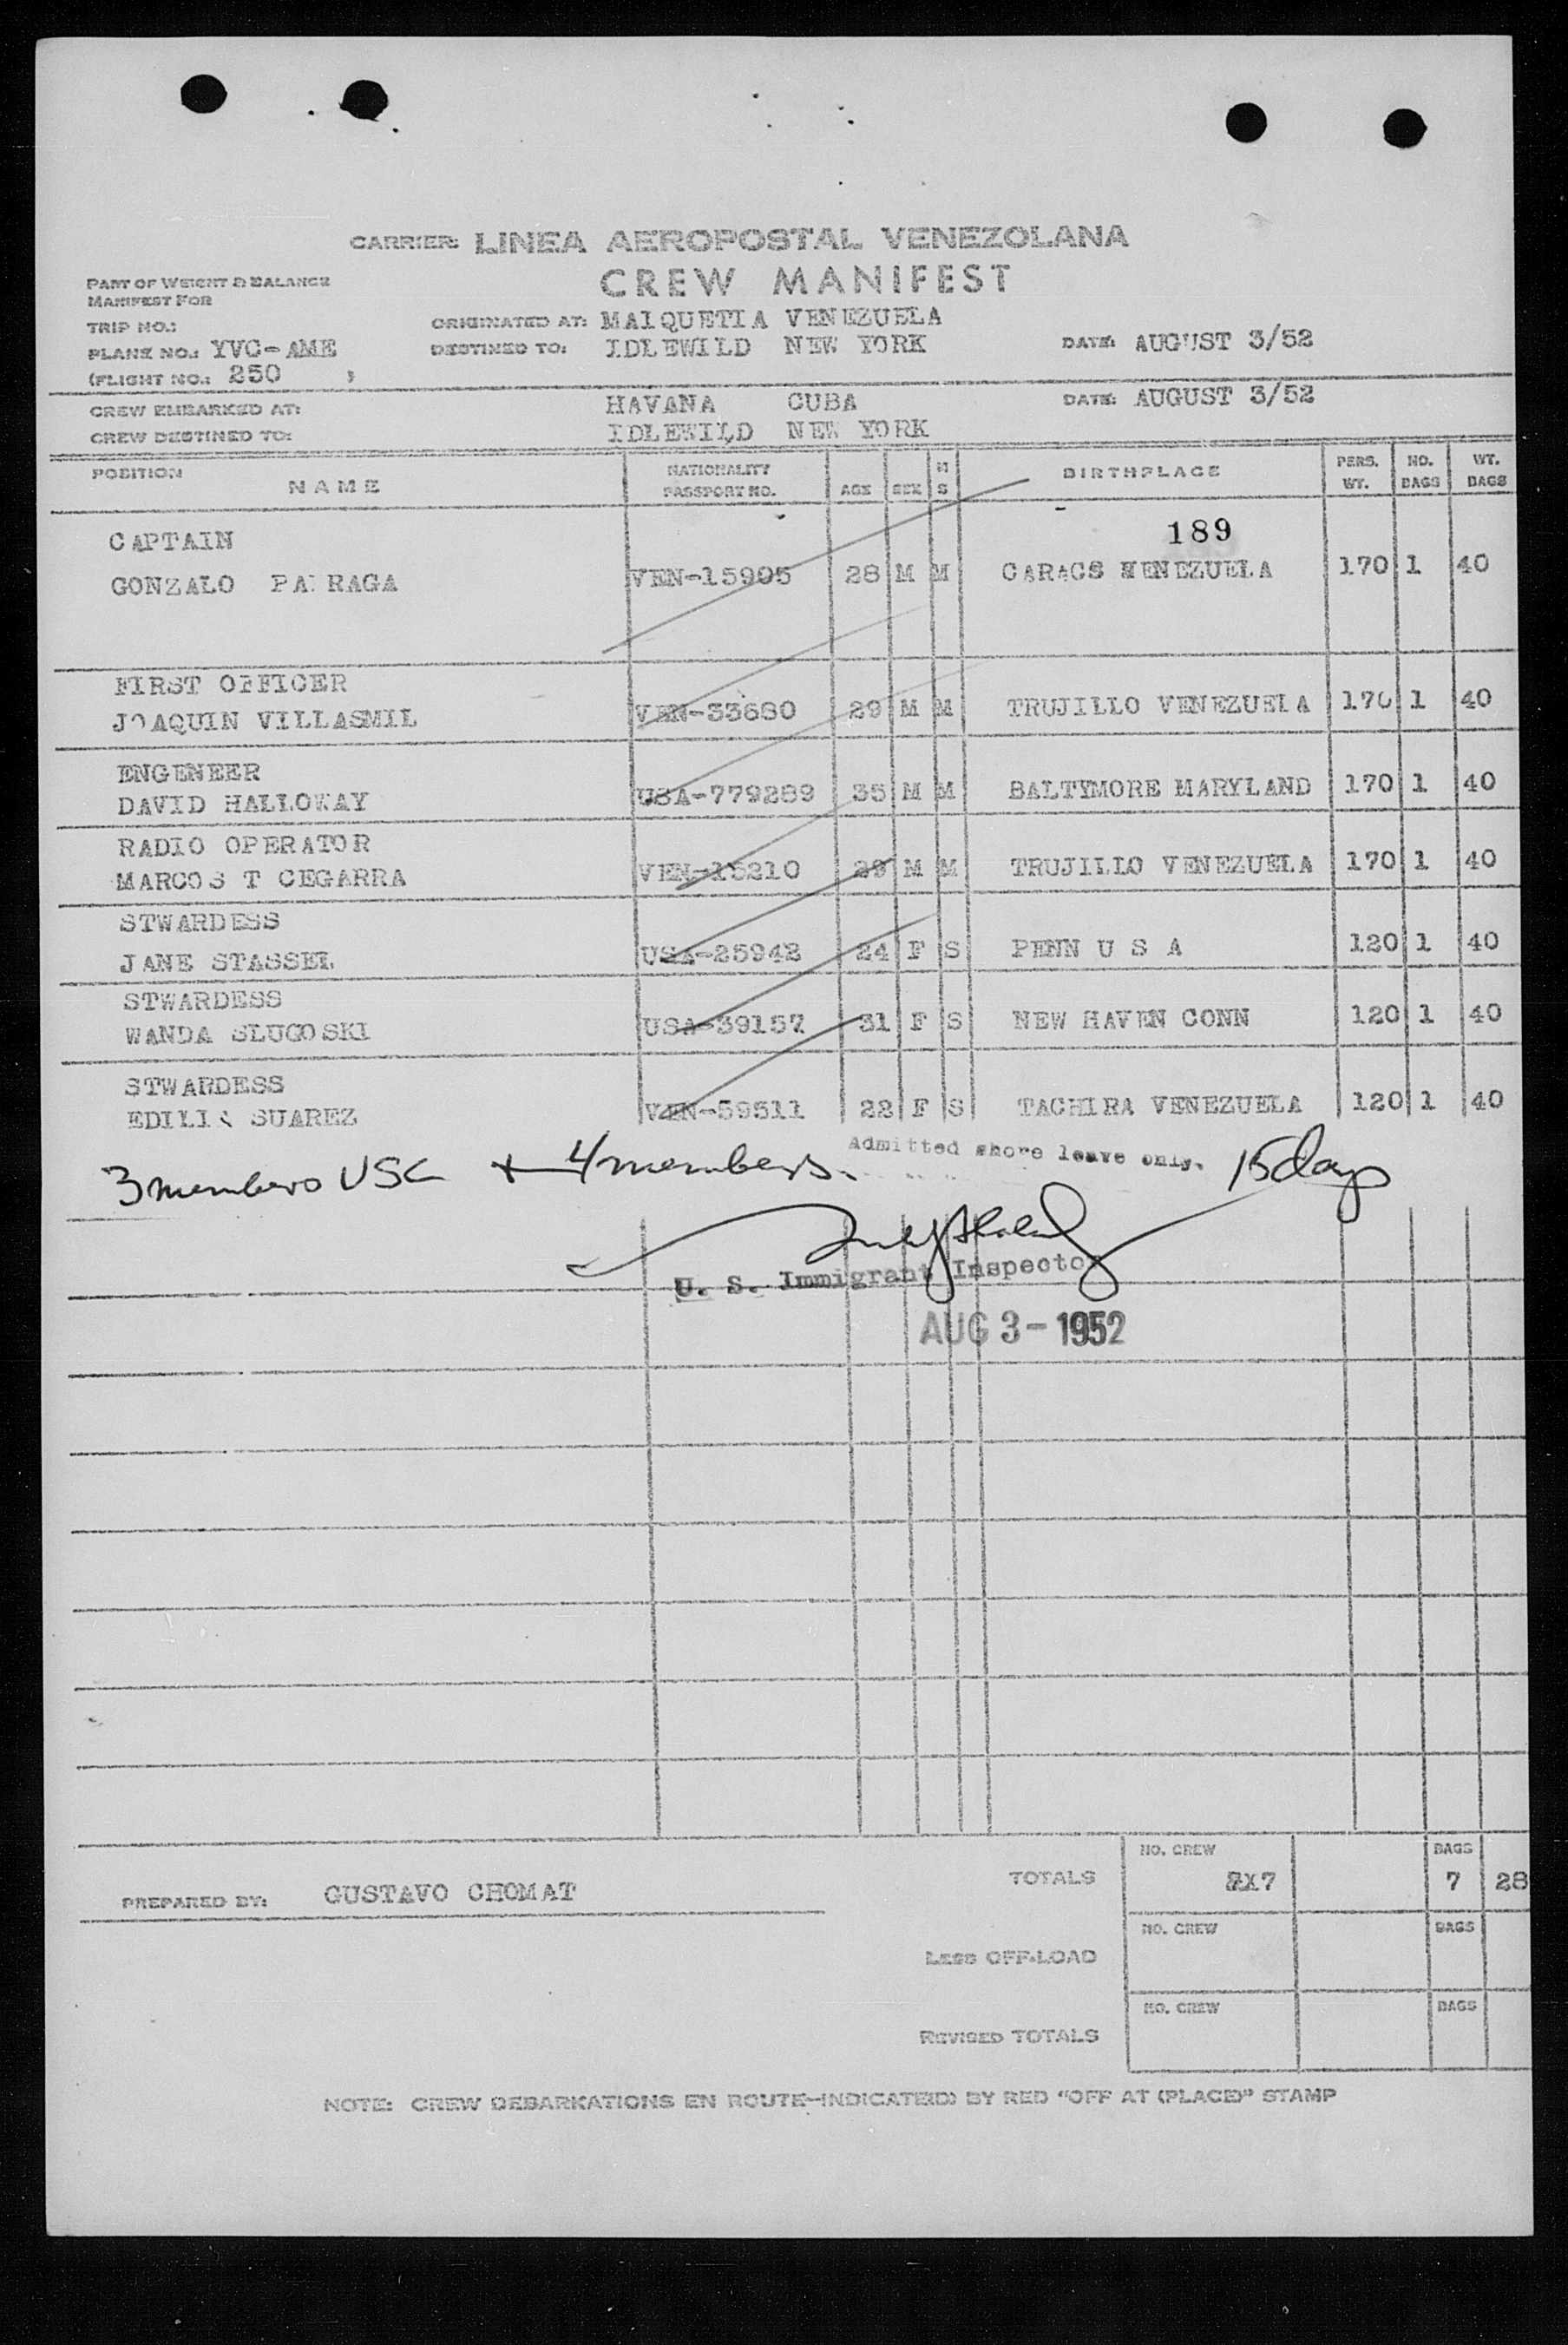 CARRIER: LINEA AEROPOSTAL VENEZOLANA
CREW MANIFEST
PART OF WEIGHT & BALANCE
MANIFEST FOR
TRIP NO.:
ORIGINATED AT: MAIQUETIA VENEZUELA
PLANE NO.: YVC-AME
DESTINED TO: IDLEWILD NEW YORK
DATE: AUGUST 3/52
(FLIGHT NO.: 250 )
CREW EMBARKED AT: HAVANA CUBA
DATE: AUGUST 3/52
CREW DESTINED TO: IDLEWILD NEW YORK
POSITION NAME NATIONALITY PASSPORT NO. AGE SEX M S BIRTHPLACE PERS. WT. NO. BAGS WT. BAGS
189
CAPTAIN
GONZALO PA RAGA VEN-15905 28 M M CARACS VENEZUELA 170 1 40
FIRST OFFICER
JOAQUIN VILLASMIL VEN-33680 29 M M TRUJILLO VENEZUELA 170 1 40
ENGENEER
DAVID HALLOWAY USA-779289 35 M M BALTYMORE MARYLAND 170 1 40
RADIO OPERATOR
MARCOS T CEGARRA VEN-15210 29 M M TRUJILLO VENEZUELA 170 1 40
STWARDESS
JANE STASSEL USA-25942 24 F S PENN U S A 120 1 40
STWARDESS
WANDA SLUGOSKI USA-39157 31 F S NEW HAVEN CONN 120 1 40
STWARDESS
EDILIA SUAREZ VEN-59511 22 F S TACHIRA VENEZUELA 120 1 40
3 members USC + 4 members. Admitted shore leave only. 15 days
U. S. Immigrant Inspector
AUG 3 - 1952
TOTALS NO. CREW 7 BAGS 7 28
PREPARED BY: GUSTAVO CHOMAT
LESS OFF-LOAD NO. CREW BAGS
REVISED TOTALS NO. CREW BAGS
NOTE: CREW DEBARKATIONS EN ROUTE-INDICATE(D) BY RED "OFF AT (PLACE)" STAMP